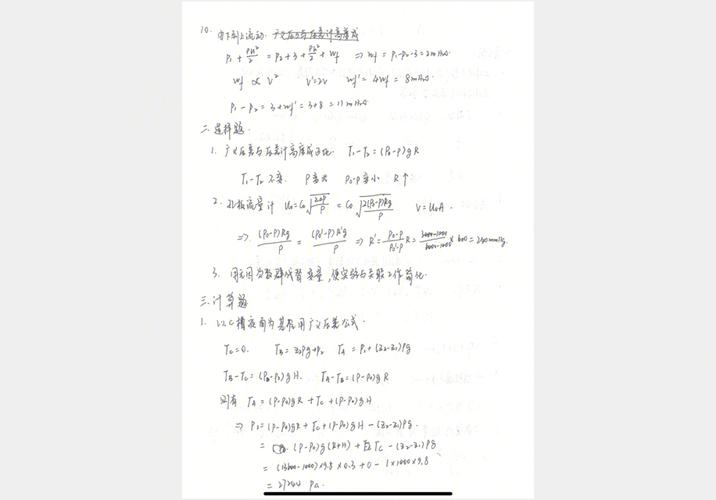 10. 由下到上流动.
P₁ + ρu²/2 = P₂ + 3 + ρu²/2 + wf ⇒ wf = P₁-P₂-3 = 2mH₂O
wf ∝ V² V'=2V wf' = 4wf = 8mH₂O
P₁-P₂ = 3+wf' = 3+8 = 11mH₂O
二. 选择题.
1. 广义压差与压差计高度成正比. T₁-T₂ = (ρ₀-ρ)gR
T₁-T₂ 不变 ρ变大 ρ₀-ρ变小 R↑
2. 孔板流量计 u₀=C₀√(2ΔP/ρ) = C₀√(2(ρ₀-ρ)Rg/ρ) V=u₀A.
⇒ (ρ₀-ρ)Rg/ρ = (ρ₀'-ρ)R'g/ρ ⇒ R' = (ρ₀-ρ)/(ρ₀'-ρ) R =
3. 用无因次数群代替变量, 使实验与关联工作简化.
三. 计算题
1. 以C槽液面为基准用广义压差公式.
T_C=0. T_B = z₂ρg+P₂ T_A = P₁+(z₂-z₁)ρg
T_B-T_C=(ρ-ρ₀)gH. T_A-T_B=(ρ-ρ₀)gR
则有 T_A = (ρ-ρ₀)gR + T_C + (ρ-ρ₀)gH
⇒ P₁ = (ρ-ρ₀)gR + T_C + (ρ-ρ₀)gH - (z₂-z₁)ρg.
= (ρ-ρ₀)g(R+H) + T_C - (z₂-z₁)ρg
= (13600-1000)×9.8×0.3+0-1×1000×9.8
= 27244 Pa.